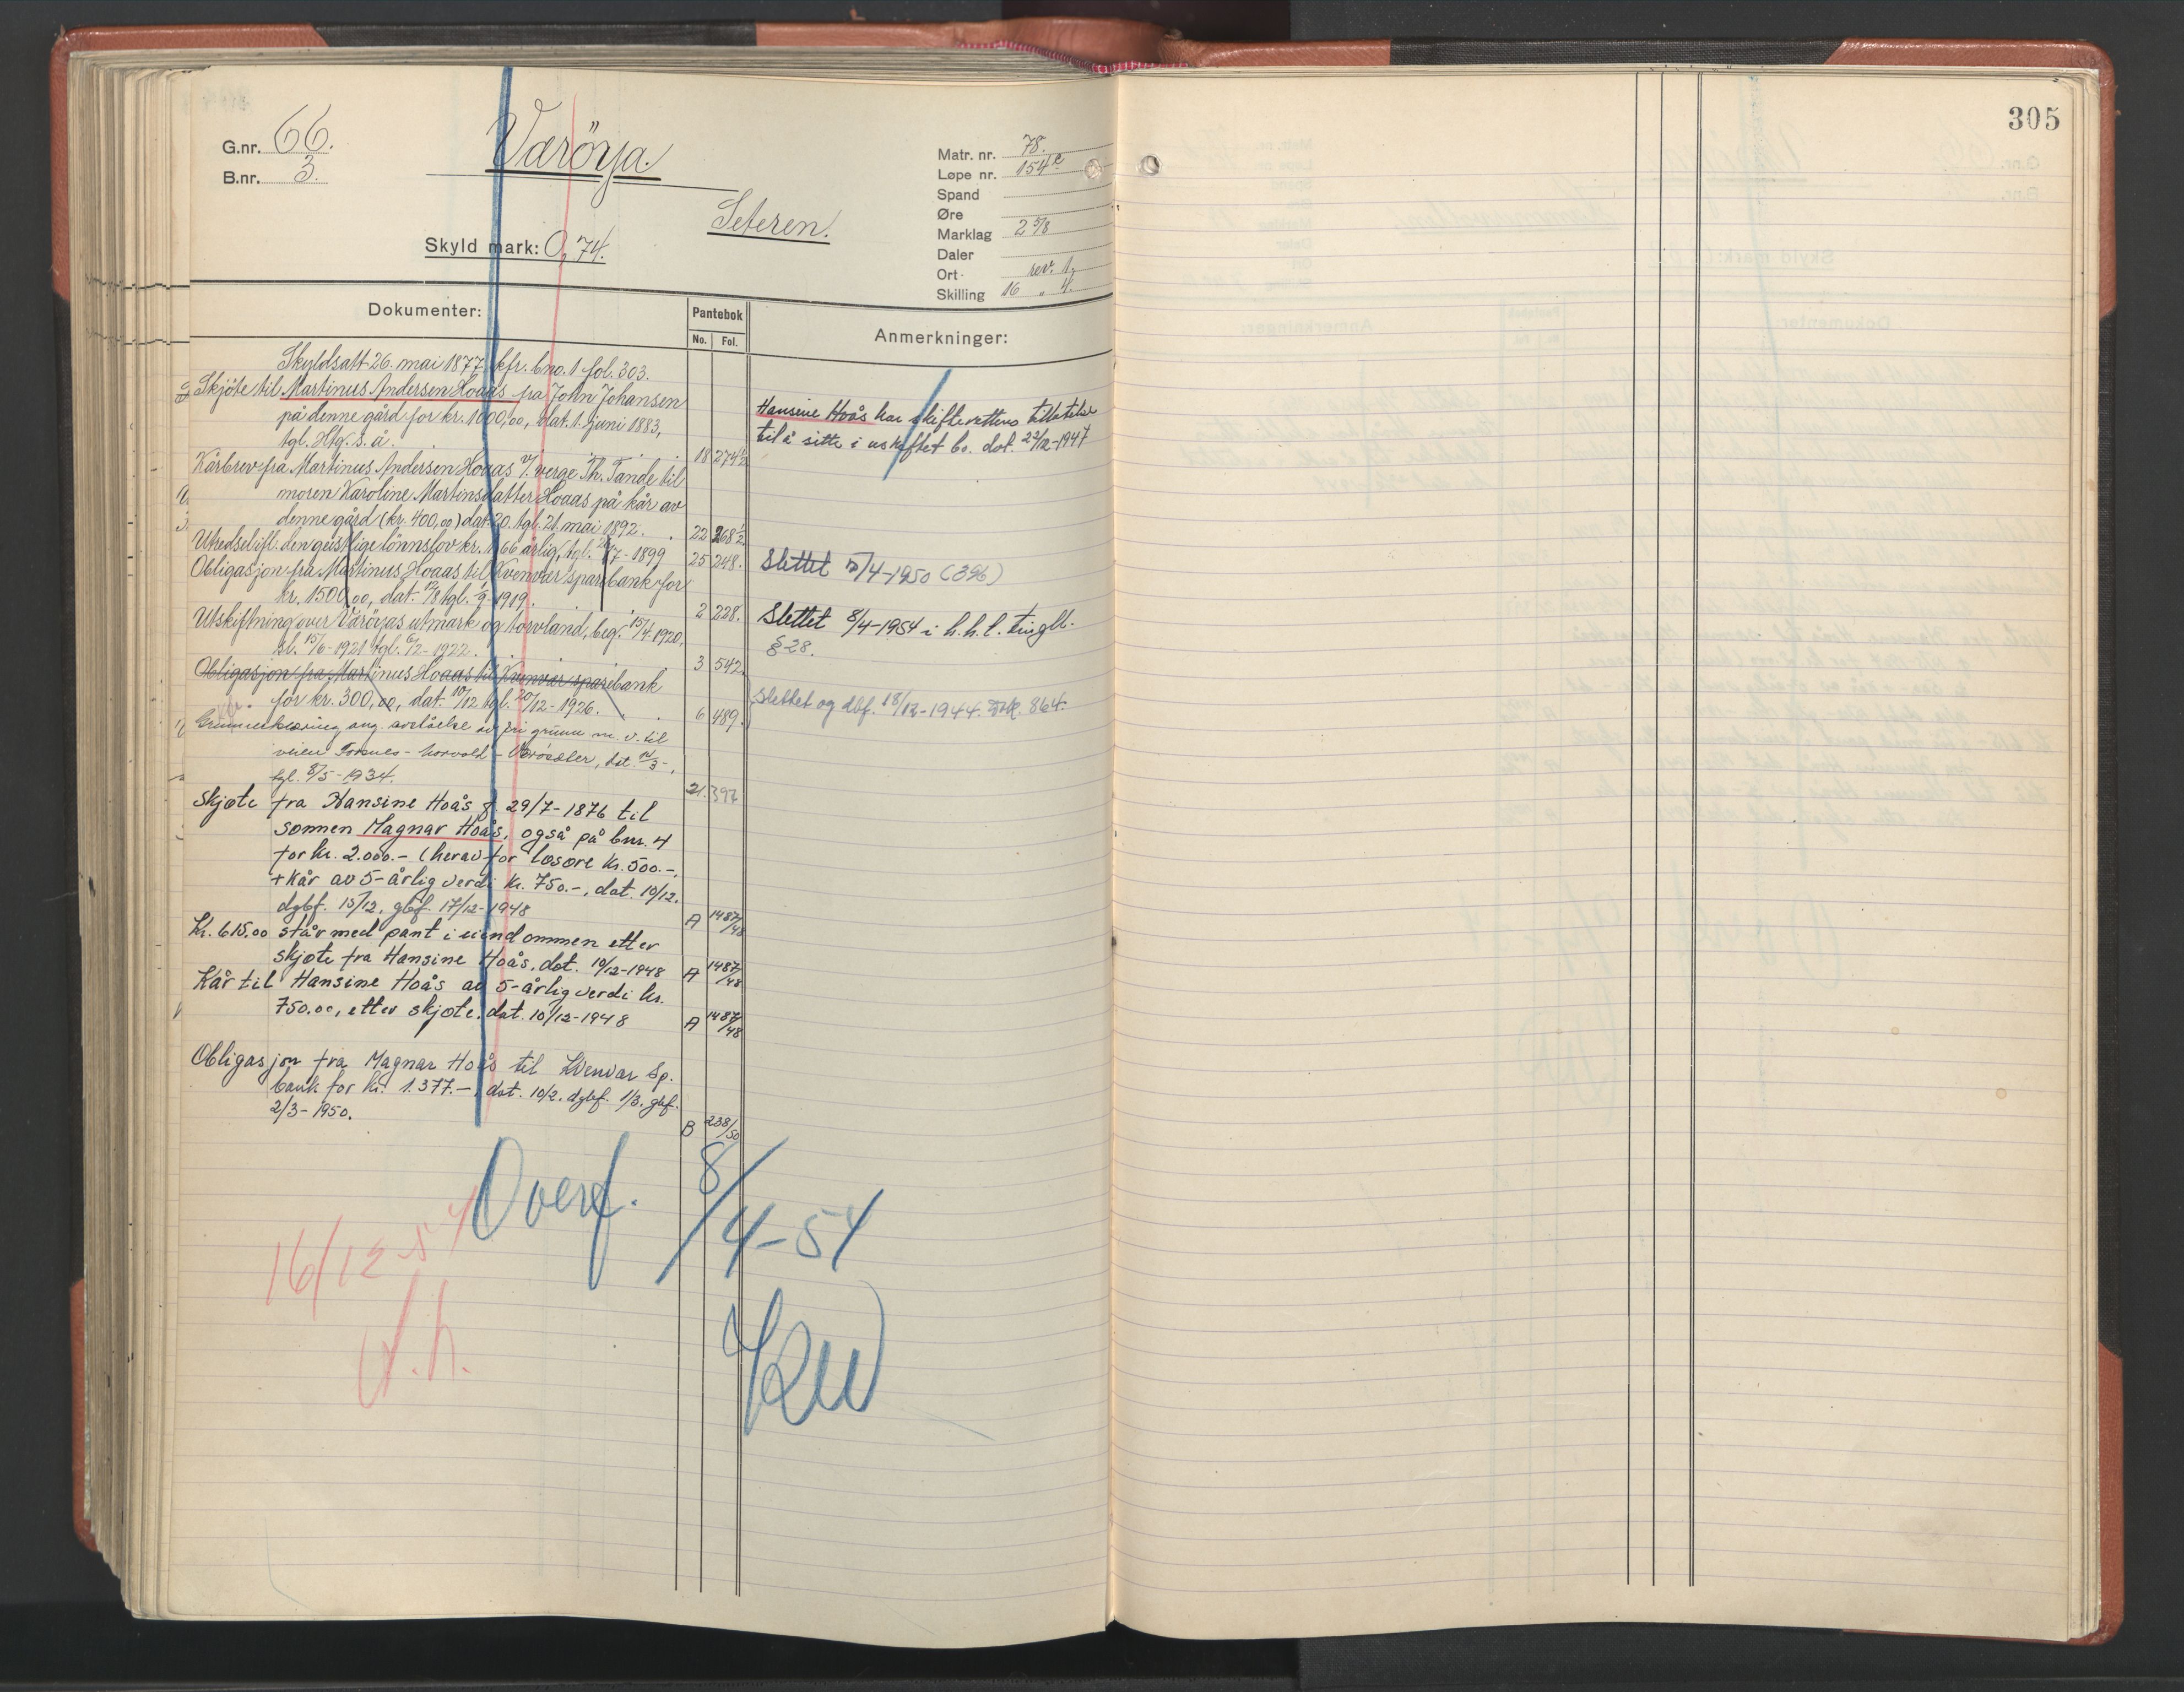 305
G.nr. 66.
B.nr. 3.
Værøya.
Seteren.
Skyld mark: 0,74.
Matr. nr. 78.
Løpe nr. 154
Spand
Øre
Marklag 2 5/8
Daler
Ort rev. 1,
Skilling 16 " 4.
Dokumenter:
Pantebok
No. Fol.
Anmerkninger:
Skyldsatt 26. mai 1877, kfr. bno. 1 fol. 303.
Skjöte til Martinus Andersen Hoaas fra John Johansen
på denne gård for kr. 1000,00, dat. 1. juni 1883,
tgl. Htg. s. å. 18 274
Kårbrev fra Martinus Andersen Hoaas v/ verge Th. Tande til
moren Karoline Martinsdatter Hoaas på kår av
denne gård (kr. 400,00) dat. 20. tgl. 21. mai 1892. 22 268 1/2
Utredsel ifl. den geistlige lønnslov kr. 1,66 årlig, tgl. /7-1899 25 248.
Obligasjon fra Martinus Hoaas til Kvenvær sparebank for
kr. 1500,00, dat. /8 tgl. /9-1919. 2 228.
Utskiftning over Væröyas utmark og torvland, beg. 15/4-1920,
sl. 15/6-1921 tgl. 6/2-1922. 3 542
Obligasjon fra Martinus Hoaas til Kvenvær sparebank
for kr. 300,00, dat. 10/12 tgl. 20/12-1926. 6 489.
Grunnerklæring ang. avståelse av fri grunn m. v. til
veien Forsnes - - , dat. /3-,
tgl. 8/5-1934. 21. 397
Skjøte fra Hansine Hoås f. 29/7-1876 til
sønnen Magnar Hoås, også på bnr. 4
for kr. 2.000.- (herav for løsøre kr. 500.-,
+ kår av 5-årlig verdi kr. 750.-, dat. 10/12.
dgbf. 15/12, gbf. 17/12-1948 A 1487/48
Kr. 615.00 står med pant i eiendommen etter
skjøte fra Hansine Hoås, dat. 10/12-1948 A 1487/48
Kår til Hansine Hoås av 5-årlig verdi kr.
750.00, etter skjøte, dat. 10/12-1948 A 1487/48
Obligasjon fra Magnar Hoås til Kvenvær Sp.
bank for kr. 1.377.-, dat. 10/2. dgbf. 1/3. gbf.
2/3-1950. B 238/50
Hansine Hoås har skifterettens tillatelse
til å sitte i uskiftet bo. dat. 22/12-1947
Slettet 5/4-1950 (396)
Slettet 8/4-1954 i h.h.t. tingll.
§ 28.
Slettet og dbf. 18/12-1944. Dok. 864.
Overf. 8/4-54
16/12-54